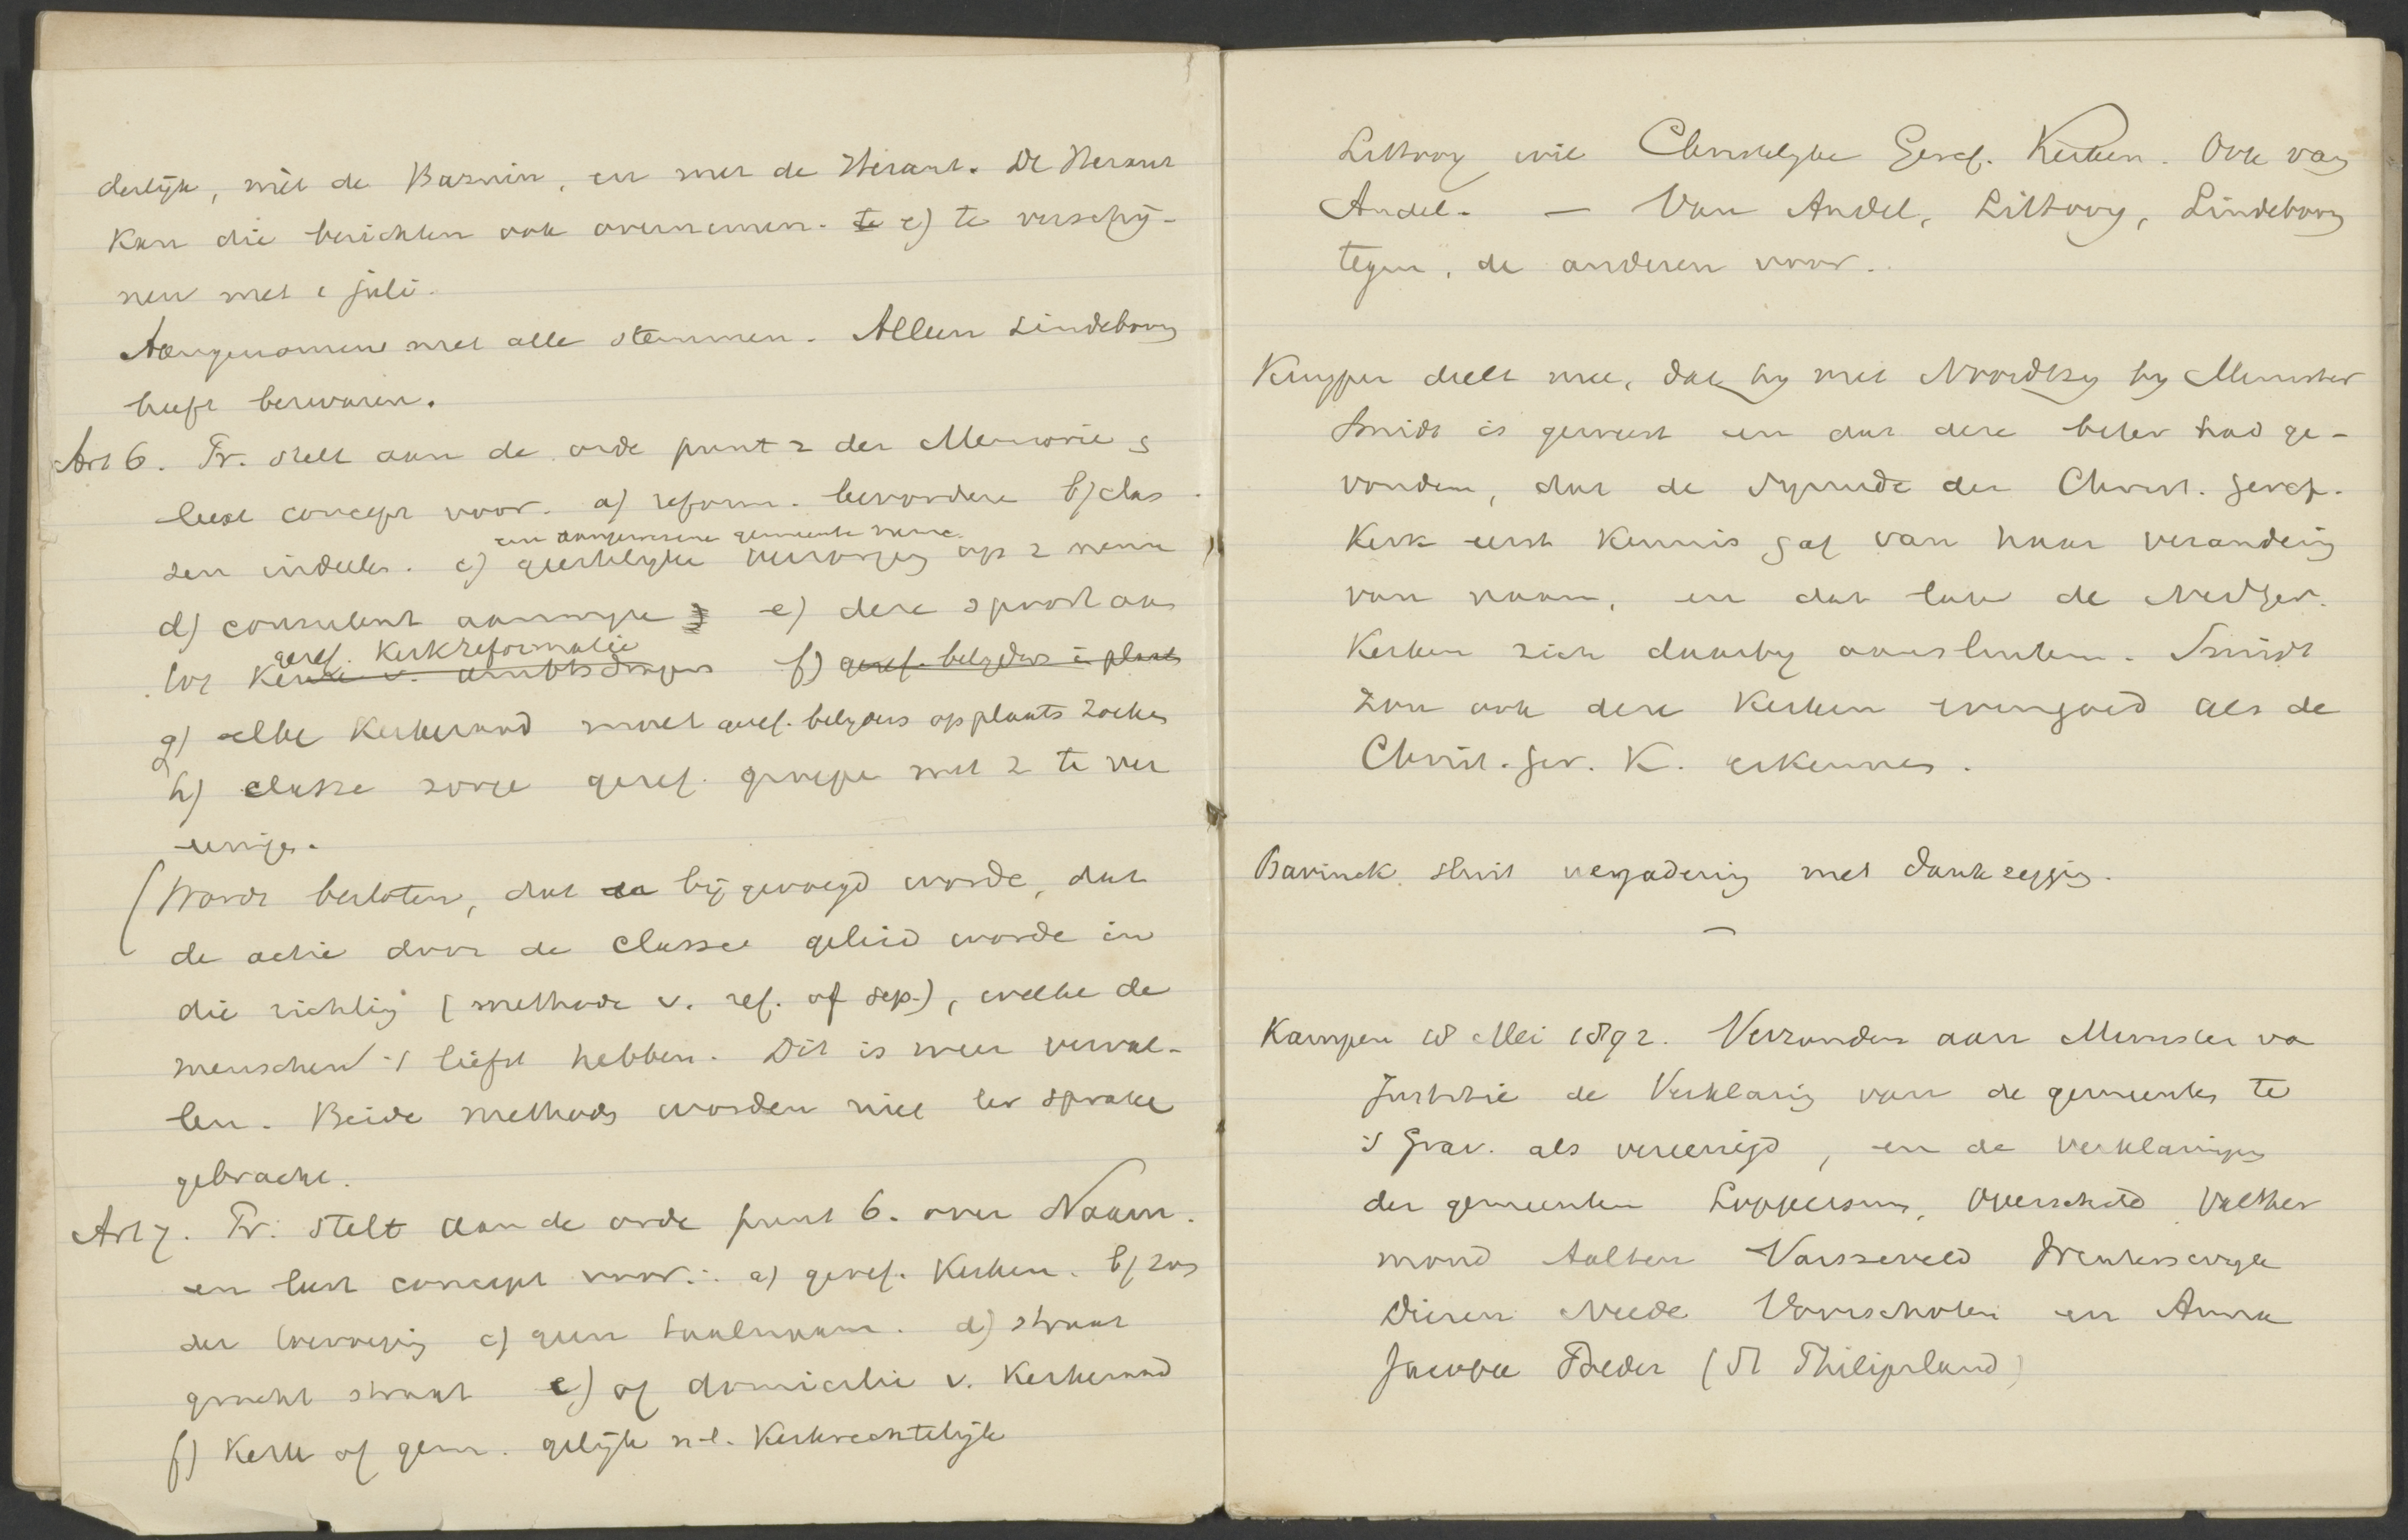 derlijk, niet de Bazuin, en met de Heraut. De Heraut
kan die berichten ook overnemen. e) te verschij-
nen met 1 juli.
Aangenomen met alle stemmen. Alleen Lindeboom
heeft bezwaren.
Art 6. Pr. stelt aan de orde punt 2 der Memorie
leest concept voor. a) reform. bevorderen b) clas
sen indeelen. c)
een aangewezene gemeente neme
kerkelijke op 2 nemen
d) consulent aanwijze e) deze spoort aan
tot
geref. Kerkreformatie
ambtsdragers f) geref. belijders in plaats
g) elke Kerkeraad moet geref. belijders op plaats zoeken
h) classe zorge geref. groepen met 2 te ver
eenigen.
(Wordt besloten, dat bijgevoegd worde, dat
de actie door de classe geleid worde in
die richting (methode v. ref. of sep.), welke de
menschen 't liefst hebben. Dit is weer verval-
len. Beide methods worden niet ter sprake
gebracht.
Art 7. Pr. stelt aan de orde punt 6. over Naam.
en leest concept voor: a) geref. Kerken. b) zon
der toevoeging c) geen d) straat
gracht straat e) of domicilie v. Kerkeraad
f) Kerk of gem. gelijk n-l. Kerkrechtelijk
Littooy wil Christelijke Geref. Kerken. Ook van
Andel. — Van Andel, Littooy, Lindeboom
tegen, de anderen voor.
Kuyper deelt mee, dat hij met Noordtzij bij Minister
Smidt is geweest en dat deze beter had ge-
vonden, dat de Synode der Christ. geref.
Kerk eerst kennis gaf van haar verandering
van naam, en dat later de Nedger.
Kerken zich daarbij aansluiten. Smidt
zou ook deze Kerken evengoed als de
Christ. ger. K. erkennen.
Bavinck sluit vergadering met dankzegging.
—
Kampen 18 Mei 1892. Verzonden aan Minister va
Justitie de Verklaring van de gemeentes te
's Grav. als vereenigd, en de verklaringen
der gemeenten Loppersum, Overschild Valther
mond Aalten Varsseveld Wenterswijk
Dieren Neede Voorschoten en Anna
Jacoba Polder (St Philipsland)